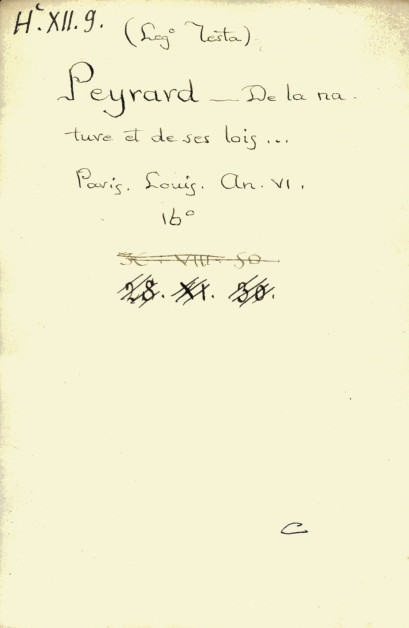 Hᶜ.XII.9.
(Leg° Testa)
Peyrard — De la na-
ture et de ses lois ...
Paris. Louis. An. VI.
16°
28. XI. 30.
C